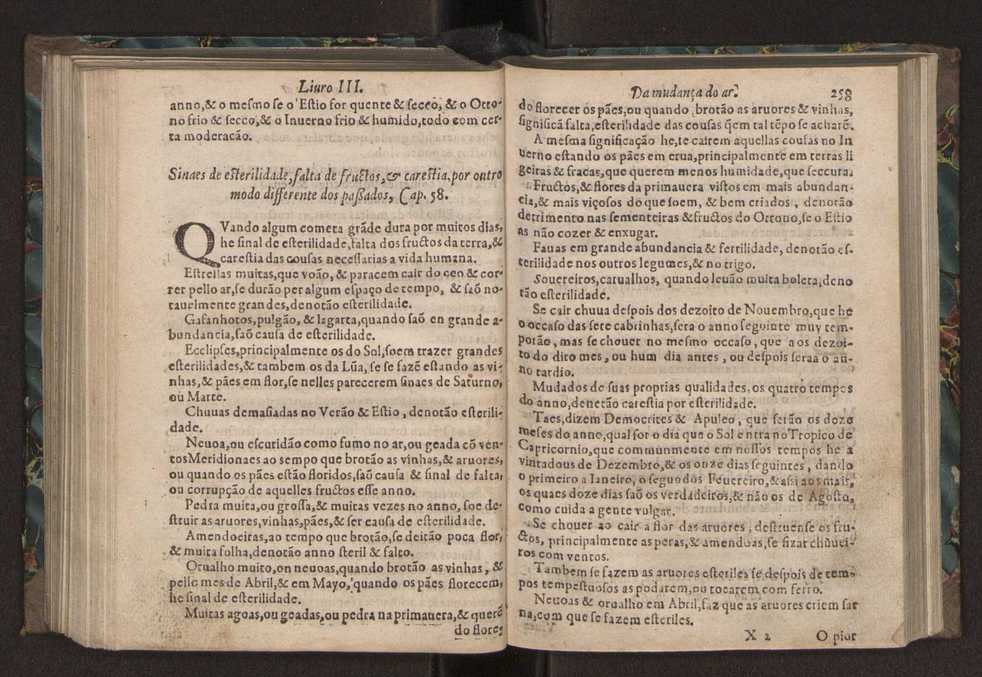 Liuro III.
anno,& o mesmo se o Estio for quente & secco, & o Otto-
no frio & secco,& o Inuerno frio & humido,todo com cer-
ta moderacão.
Sinaes de esterilidade,falta de fructos,& carestia,por outro
modo differente dos passados, Cap. 58.
QVando algum cometa grãde dura por muitos dias,
he sinal de esterilidade,falta dos fructos da terra,&
carestia das cousas necessarias a vida humana.
Estrellas muitas,que voão, & paracem cair do ceo & cor-
rer pello ar,se durão per algum espaço de tempo, & saõ no-
tauelmente grandes,denotão esterilidade.
Gafanhotos,pulgão, & lagarta,quando saõ en grande a-
bundancia,saõ causa de esterilidade.
Ecclipses,principalmente os do Sol,soem trazer grandes
esterilidades,& tambem os da Lũa, se se fazẽ estando as vi-
nhas,& pães em flor,se nelles parecerem sinaes de Saturno,
ou Marte.
Chuuas demasiadas no Verão & Estio , denotão esterili-
dade.
Neuoa,ou escuridão como fumo no ar,ou geada cõ ven-
tosMeridionaes ao sempo que brotão as vinhas,& aruores,
ou quando os pães estão floridos,saõ causa & sinal de falta,
ou corrupção de aquelles fructos esse anno.
Pedra muita,ou grossa,& muitas vezes no anno, soe de-
struir as aruores,vinhas,pães,& ser causa de esterilidade.
Amendoeiras,ao tempo que brotão,se deitão poca flor,
& muita folha,denotão anno steril & falto.
Orualho muito,on neuoas,quando brotão as vinhas, &
pello mes de Abril,& em Mayo, quando os pães florecem,
he sinal de esterilidade.
Muitas agoas,ou geadas,ou pedra na primauera,& querẽ
do flore-
Da mudança do ar. 258
do florecer os pães,ou quando brotão as aruores & vinhas,
significã falta,esterilidade das cousas q̃em tal tẽpo se acharẽ.
A mesma significação he,te cairem aquellas cousas no In
uerno estando os pães em erua,principalmente em terras li
geiras & fracas,que querem menos humidade,que seccura.
Fructos,& flores da primauera vistos em mais abundan-
cia,& mais viçosos do que soem, & bem criados , denotão
detrimento nas sementeiras & fructos do Ottono,se o Estio
as não cozer & enxugar.
Fauas em grande abundancia & fertilidade, denotão es-
terilidade nos outros legumes,& no trigo.
Souereiros,carualhos, quando leuão muita boleta,deno
tão esterilidade.
Se cair chuua despois dos dezoito de Nouembro,que he
o occaso das sete cabrinhas,sera o anno seguinte muy tem-
porão, mas se chouer no mesmo occaso, que a os dezoi-
to do dito mes , ou hum dia antes , ou despois seraa o an-
no tardio.
Mudados de suas proprias qualidades,os quatro tempos
do anno,denotão carestia por esterilidade.
Taes,dizem Democrites & Apuleo , que serão os doze
meses do anno,qual for o dia que o Sol entra no Tropico de
Capricornio,que communmente em nossos tempos he a
vintadous de Dezembro,& os onze dias seguintes , dando
o primeiro a Ianeiro, o segundos Feuereiro,&assi aos mais,
os quaes doze dias saõ os verdadeiros,& não os de Agosto,
como cuida a gente vulgar.
Se chouer ao cair a flor das aruores , destruense os fru-
ctos, principalmente as peras,& amendoas,se fizar chuuei-
ros com ventos.
Tambem se fazem as aruores esteriles se despois de tem-
pos tempestuosos as podarem,ou tocarem com ferro.
Neuoas & orualho em Abril,faz que as aruores criem sar
na,com que se fazem esteriles.
X 2 O pior